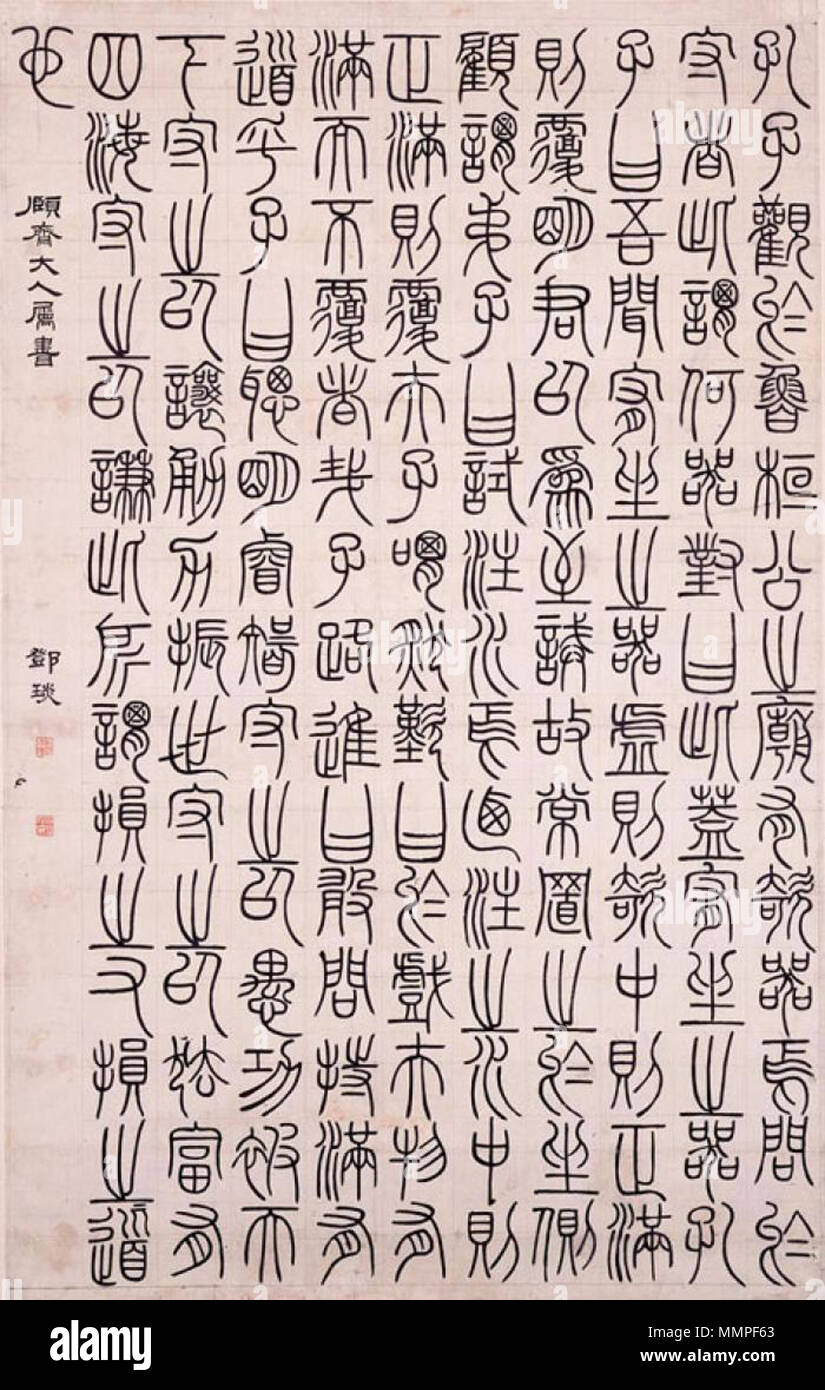 孔子觀於魯桓公之廟有欹器焉問於
守者此謂何器對曰此蓋宥坐之器孔
子曰吾聞宥坐之器虛則欹中則正滿
則覆明君以為至誡故常置之於坐側
顧謂弟子曰試注水焉迺注之水中則
正滿則覆夫子喟然歎曰於戲夫物有
滿而不覆者哉子路進曰敢問持滿有
道乎子曰聰明睿智守之以愚功被天
下守之以讓勇力振世守之以怯富有
四海守之以謙此所謂損之又損之道
也
頤齊大人屬書
鄧琰
alamy
alamy
alamy
a
a
a
alamy
Image ID: MMPF63
www.alamy.com